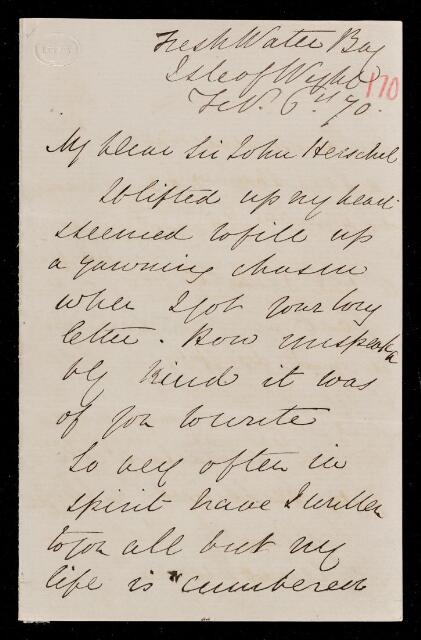 Fresh Water Bay
Isle of Wight
170
Feb. 6th 70.
My dear Sir John Herschel
It lifted up my heart
& seemed to fill up
a yawning chasm
when I got your long
letter. How unspeaka
bly kind it was
of you to write
So very often in
spirit have I written
to you all but my
life is "cumbered